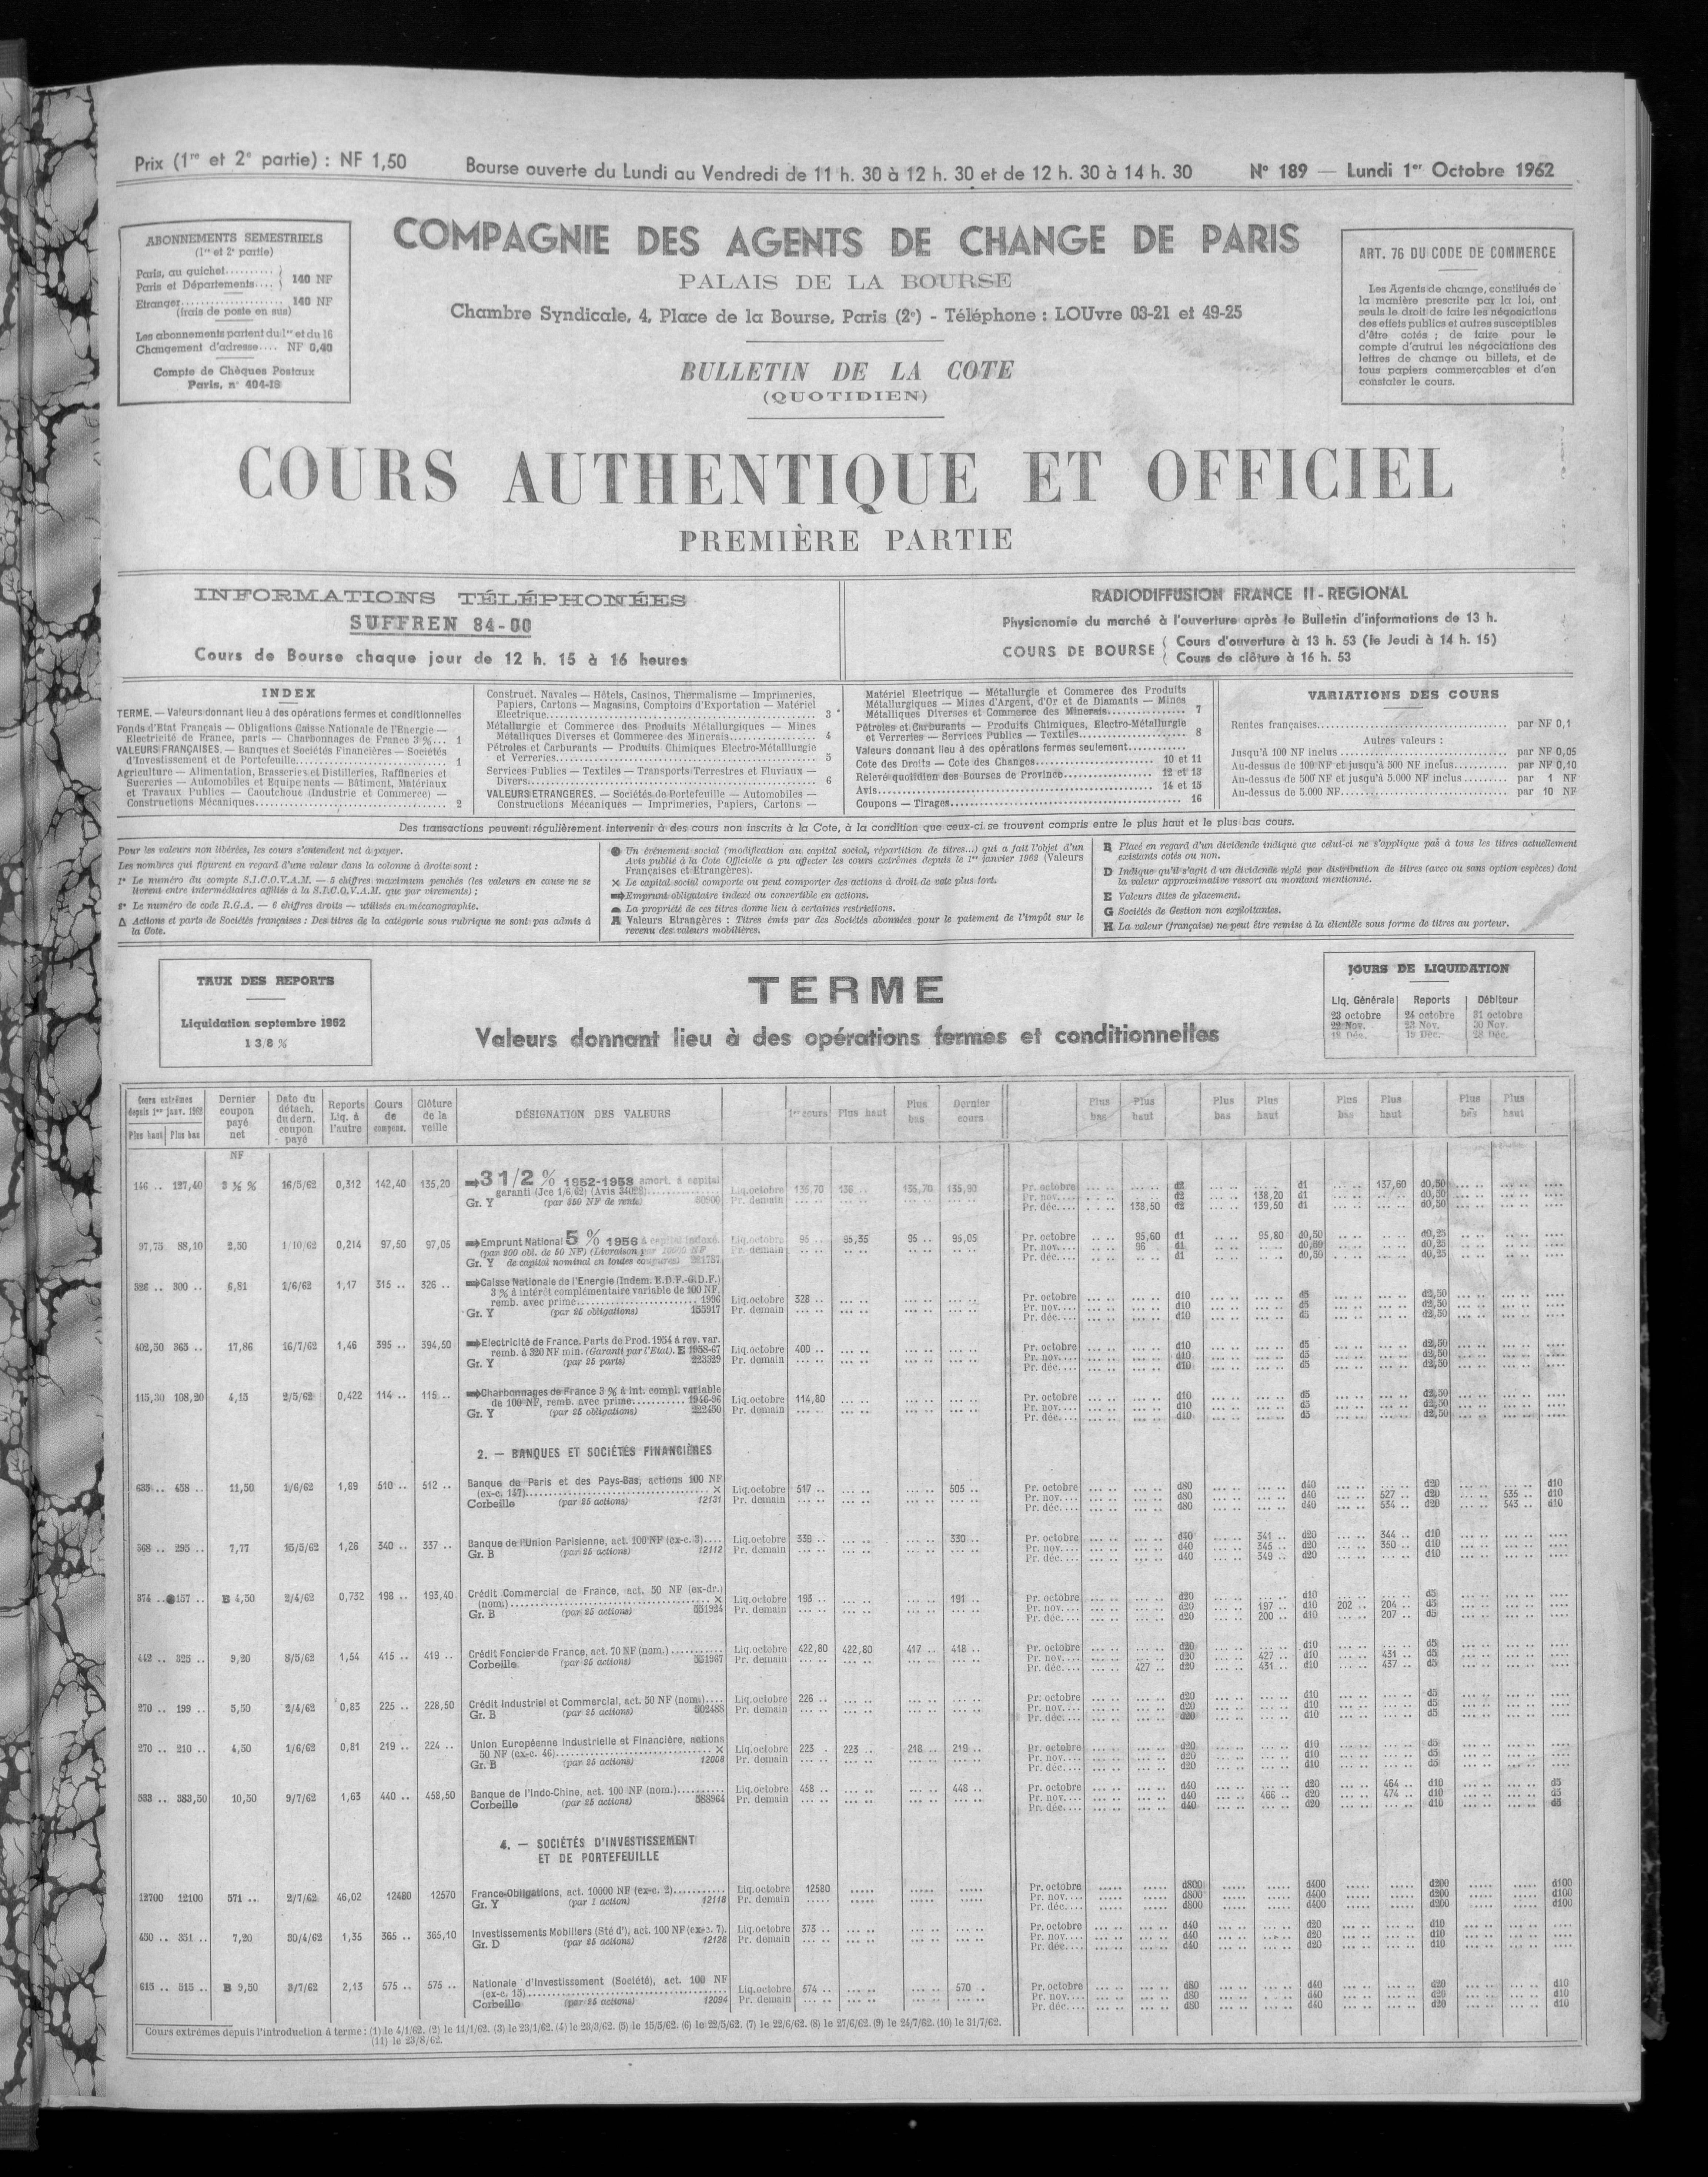 Prix (1re et 2e partie) : NF 1,50
Bourse ouverte du Lundi au Vendredi de 11 h. 30 à 12 h. 30 et de 12 h. 30 à 14 h. 30
N° 189 — Lundi 1er Octobre 1962
ABONNEMENTS SEMESTRIELS
(1re et 2e partie)
Paris, au guichet..........
Paris et Départements.... } 140 NF
Etranger.................... 140 NF
(frais de poste en sus)
Les abonnements partent du 1er et du 16
Changement d'adresse.... NF 0,40
Compte de Chèques Postaux
Paris, n° 404-18
COMPAGNIE DES AGENTS DE CHANGE DE PARIS
PALAIS DE LA BOURSE
Chambre Syndicale, 4, Place de la Bourse, Paris (2e) - Téléphone : LOUvre 03-21 et 49-25
BULLETIN DE LA COTE
(QUOTIDIEN)
ART. 76 DU CODE DE COMMERCE
Les Agents de change, constitués de
la manière prescrite par la loi, ont
seuls le droit de faire les négociations
des effets publics et autres susceptibles
d'être cotés ; de faire pour le
compte d'autrui les négociations des
lettres de change ou billets, et de
tous papiers commerçables et d'en
constater le cours.
COURS AUTHENTIQUE ET OFFICIEL
PREMIÈRE PARTIE
INFORMATIONS TÉLÉPHONÉES
SUFFREN 84-00
Cours de Bourse chaque jour de 12 h. 15 à 16 heures
RADIODIFFUSION FRANCE II - REGIONAL
Physionomie du marché à l'ouverture après le Bulletin d'informations de 13 h.
COURS DE BOURSE { Cours d'ouverture à 13 h. 53 (le Jeudi à 14 h. 15)
Cours de clôture à 16 h. 53
INDEX
TERME. — Valeurs donnant lieu à des opérations fermes et conditionnelles
Fonds d'Etat Français — Obligations Caisse Nationale de l'Energie —
Electricité de France, parts — Charbonnages de France 3 %... 1
VALEURS FRANÇAISES. — Banques et Sociétés Financières — Sociétés
d'Investissement et de Portefeuille.............................. 1
Agriculture — Alimentation, Brasseries et Distilleries, Raffineries et
Sucreries — Automobiles et Equipements — Bâtiment, Matériaux
et Travaux Publics — Caoutchouc (Industrie et Commerce) —
Constructions Mécaniques.............................. 2
Construct. Navales — Hôtels, Casinos, Thermalisme — Imprimeries,
Papiers, Cartons — Magasins, Comptoirs d'Exportation — Matériel
Electrique.............................. 3
Métallurgie et Commerce des Produits Métallurgiques — Mines
Métalliques Diverses et Commerce des Minerais.................... 4
Pétroles et Carburants — Produits Chimiques Electro-Métallurgie
et Verreries.............................. 5
Services Publics — Textiles — Transports Terrestres et Fluviaux —
Divers.............................. 6
VALEURS ETRANGERES. — Sociétés de Portefeuille — Automobiles —
Constructions Mécaniques — Imprimeries, Papiers, Cartons —
Matériel Electrique — Métallurgie et Commerce des Produits
Métallurgiques — Mines d'Argent, d'Or et de Diamants — Mines
Métalliques Diverses et Commerce des Minerais............... 7
Pétroles et Carburants — Produits Chimiques, Electro-Métallurgie
et Verreries — Services Publics — Textiles.................... 8
Valeurs donnant lieu à des opérations fermes seulement............
Cote des Droits — Cote des Changes.................... 10 et 11
Relevé quotidien des Bourses de Province............... 12 et 13
Avis.............................. 14 et 15
Coupons — Tirages.............................. 16
VARIATIONS DES COURS
Rentes françaises.............................. par NF 0,1
Autres valeurs :
Jusqu'à 100 NF inclus.............................. par NF 0,05
Au-dessus de 100 NF et jusqu'à 500 NF inclus.......... par NF 0,10
Au-dessus de 500 NF et jusqu'à 5.000 NF inclus......... par 1 NF
Au-dessus de 5.000 NF.............................. par 10 NF
Des transactions peuvent régulièrement intervenir à des cours non inscrits à la Cote, à la condition que ceux-ci se trouvent compris entre le plus haut et le plus bas cours.
Pour les valeurs non libérées, les cours s'entendent net à payer.
Les nombres qui figurent en regard d'une valeur dans la colonne à droite sont :
1° Le numéro du compte S.I.C.O.V.A.M. — 5 chiffres maximum penchés (les valeurs en cause ne se
livrent entre intermédiaires affiliés à la S.I.C.O.V.A.M. que par virements) ;
2° Le numéro de code R.G.A. — 6 chiffres droits — utilisés en mécanographie.
Δ Actions et parts de Sociétés françaises : Des titres de la catégorie sous rubrique ne sont pas admis à
la Cote.
● Un événement social (modification au capital social, répartition de titres...) qui a fait l'objet d'un
Avis publié à la Cote Officielle a pu affecter les cours extrêmes depuis le 1er janvier 1962 (Valeurs
Françaises et Etrangères).
× Le capital social comporte ou peut comporter des actions à droit de vote plus fort.
➡ Emprunt obligataire indexé ou convertible en actions.
La propriété de ces titres donne lieu à certaines restrictions.
A Valeurs Etrangères : Titres émis par des Sociétés abonnées pour le paiement de l'impôt sur le
revenu des valeurs mobilières.
B Placé en regard d'un dividende indique que celui-ci ne s'applique pas à tous les titres actuellement
existants cotés ou non.
D Indique qu'il s'agit d'un dividende réglé par distribution de titres (avec ou sans option espèces) dont
la valeur approximative ressort au montant mentionné.
E Valeurs dites de placement.
G Sociétés de Gestion non exploitantes.
H La valeur (française) ne peut être remise à la clientèle sous forme de titres au porteur.
TAUX DES REPORTS
Liquidation septembre 1962
1 3/8 %
TERME
Valeurs donnant lieu à des opérations fermes et conditionnelles
JOURS DE LIQUIDATION
Liq. Générale | Reports | Débiteur
23 octobre | 24 octobre | 31 octobre
22 Nov. | 23 Nov. | 30 Nov.
18 Déc. | 19 Déc. | 28 Déc.
Cours extrêmes depuis 1er janv. 1962 | Dernier coupon payé net | Date du détach. du dern. coupon payé | Reports Liq. à l'autre | Cours de compens. | Clôture de la veille | DÉSIGNATION DES VALEURS | 1er cours | Plus haut | Plus bas | Dernier cours | Plus bas | Plus haut | Plus bas | Plus haut | Plus bas | Plus haut | Plus bas | Plus haut
Plus haut | Plus bas
NF
146 .. 127,40 3 ½ % 16/5/62 0,312 142,40 135,20 ➡3 1/2 % 1952-1958 amort. à capital
garanti (Jce 1/6/62) (Avis ............... Liq. octobre 135,70 136 .. 135,70 135,90 Pr. octobre d2 d1 137,60 d0,50
Gr. Y (par 350 NF de rente) Pr. demain Pr. nov.... d2 138,20 d1 d0,50
Pr. déc.... 138,50 d2 139,50 d1 d0,50
97,75 88,10 2,50 1/10/62 0,214 97,50 97,05 ➡Emprunt National 5 % 1956 à capital indexé. Liq. octobre 95 .. 95,35 95 .. 95,05 Pr. octobre 95,60 d1 95,80 d0,50 d0,25
(par 200 obl. de 50 NF) (Livraison par Pr. demain Pr. nov.... 96 d1 d0,50 d0,25
Gr. Y de capital nominal en toutes coupures) Pr. déc.... d1 d0,50 d0,25
326 .. 300 .. 6,81 1/6/62 1,17 315 .. 326 .. ➡Caisse Nationale de l'Energie (Indem. E.D.F.-G.D.F.)
3 % à intérêt complémentaire variable de 100 NF,
remb. avec prime.................... 1996 Liq. octobre 328 .. Pr. octobre d10 d5 d2,50
Gr. Y (par 25 obligations) 155917 Pr. demain Pr. nov.... d10 d5 d2,50
Pr. déc.... d10 d5 d2,50
402,50 365 .. 17,86 16/7/62 1,46 395 .. 394,50 ➡Electricité de France. Parts de Prod. 1954 à rev. var.
remb. à 320 NF min. (Garanti par l'Etat). E 1958-67 Liq. octobre 400 .. Pr. octobre d10 d5 d2,50
Gr. Y (par 25 parts) 223329 Pr. demain Pr. nov.... d10 d5 d2,50
Pr. déc.... d10 d5 d2,50
115,30 108,20 4,15 2/5/62 0,422 114 .. 115 .. ➡Charbonnages de France 3 % à int. compl. variable
de 100 NF, remb. avec prime........... 1946-96 Liq. octobre 114,80 Pr. octobre d10 d5 d2,50
Gr. Y (par 25 obligations) 222450 Pr. demain Pr. nov.... d10 d5 d2,50
Pr. déc.... d10 d5 d2,50
2. — BANQUES ET SOCIÉTÉS FINANCIÈRES
635 .. 458 .. 11,50 1/6/62 1,89 510 .. 512 .. Banque de Paris et des Pays-Bas, actions 100 NF
(ex-c. 157).............................. × Liq. octobre 517 .. 505 .. Pr. octobre d80 d40 d20 d10
Corbeille (par 25 actions) 12131 Pr. demain Pr. nov.... d80 d40 527 .. d20 535 .. d10
Pr. déc.... d80 d40 534 .. d20 543 .. d10
368 .. 295 .. 7,77 15/5/62 1,26 340 .. 337 .. Banque de l'Union Parisienne, act. 100 NF (ex-c. 3).... Liq. octobre 339 .. 330 .. Pr. octobre d40 341 .. d20 344 .. d10
Gr. B (par 25 actions) 12112 Pr. demain Pr. nov.... d40 345 .. d20 350 .. d10
Pr. déc.... d40 349 .. d20 d10
374 .. ●157 .. B 4,50 2/4/62 0,732 198 .. 193,40 Crédit Commercial de France, act. 50 NF (ex-dr.)
(nom.).............................. × Liq. octobre 193 .. 191 .. Pr. octobre d20 d10 d5
Gr. B (par 25 actions) 551924 Pr. demain Pr. nov.... d20 197 .. d10 202 .. 204 .. d5
Pr. déc.... d20 200 .. d10 207 .. d5
442 .. 325 .. 9,20 8/5/62 1,54 415 .. 419 .. Crédit Foncier de France, act. 70 NF (nom.)........... Liq. octobre 422,80 422,80 417 .. 418 .. Pr. octobre d20 d10 d5
Corbeille (par 25 actions) 551967 Pr. demain Pr. nov.... d20 427 .. d10 431 .. d5
Pr. déc.... 427 .. d20 431 .. d10 437 .. d5
270 .. 199 .. 5,50 2/4/62 0,83 225 .. 228,50 Crédit Industriel et Commercial, act. 50 NF (nom.).... Liq. octobre 226 .. Pr. octobre d20 d10 d5
Gr. B (par 25 actions) 502488 Pr. demain Pr. nov.... d20 d10 d5
Pr. déc.... d20 d10 d5
270 .. 210 .. 4,50 1/6/62 0,81 219 .. 224 .. Union Européenne Industrielle et Financière, actions
50 NF (ex-c. 46).............................. × Liq. octobre 223 . 223 .. 218 .. 219 .. Pr. octobre d20 d10 d5
Gr. B (par 25 actions) 12008 Pr. demain Pr. nov.... d20 d10 d5
Pr. déc.... d20 d10 d5
533 .. 383,50 10,50 9/7/62 1,63 440 .. 458,50 Banque de l'Indo-Chine, act. 100 NF (nom.).......... Liq. octobre 458 .. 448 .. Pr. octobre d40 d20 464 .. d10 d5
Corbeille (par 25 actions) 588964 Pr. demain Pr. nov.... d40 466 .. d20 474 .. d10 d5
Pr. déc.... d40 d20 d10 d5
4. — SOCIÉTÉS D'INVESTISSEMENT
ET DE PORTEFEUILLE
12700 12100 571 .. 2/7/62 46,02 12480 12570 France-Obligations, act. 10000 NF (ex-c. 2)........... Liq. octobre 12580 Pr. octobre d800 d400 d200 d100
Gr. Y (par 1 action) 12118 Pr. demain Pr. nov.... d800 d400 d200 d100
Pr. déc.... d800 d400 d200 d100
450 .. 351 .. 7,20 30/4/62 1,35 365 .. 365,10 Investissements Mobiliers (Sté d'), act. 100 NF (ex-c. 7). Liq. octobre 373 .. Pr. octobre d40 d20 d10
Gr. D (par 25 actions) 12128 Pr. demain Pr. nov.... d40 d20 d10
Pr. déc.... d40 d20 d10
615 .. 515 .. B 9,50 3/7/62 2,13 575 .. 575 .. Nationale d'Investissement (Société), act. 100 NF
(ex-c. 15).............................. Liq. octobre 574 .. 570 . Pr. octobre d80 d40 d20 d10
Corbeille (par 25 actions) 12094 Pr. demain Pr. nov.... d80 d40 d20 d10
Pr. déc.... d80 d40 d20 d10
Cours extrêmes depuis l'introduction à terme : (1) le 4/1/62. (2) le 11/1/62. (3) le 23/1/62. (4) le 23/3/62. (5) le 15/5/62. (6) le 22/5/62. (7) le 22/6/62. (8) le 27/6/62. (9) le 24/7/62. (10) le 31/7/62.
(11) le 23/8/62.